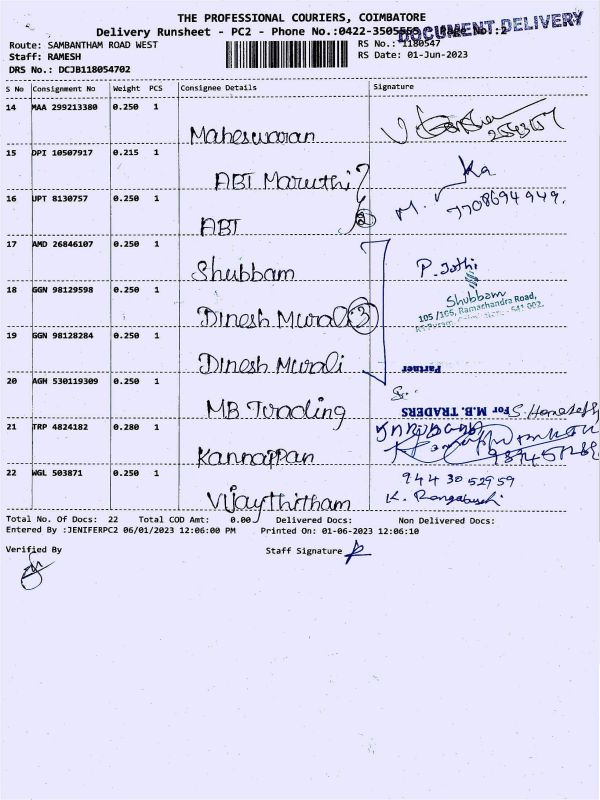 THE PROFESSIONAL COURIERS, COIMBATORE
Delivery Runsheet - PC2 - Phone No.:0422-3505555 Page No.:2
DOCUMENT DELIVERY
Route: SAMBANTHAM ROAD WEST
RS No.: 1180547
Staff: RAMESH
RS Date: 01-Jun-2023
DRS No.: DCJB118054702
S No Consignment No Weight PCS Consignee Details Signature
14 MAA 299213380 0.250 1
Maheswaran
15 DPI 10507917 0.215 1
ABT Maruthi
16 UPT 8130757 0.250 1
M. 7708694949.
ABT 2
17 AMD 26846107 0.250 1
Shubbam P. Jothi
18 GGN 98129598 0.250 1
Shubbam
105 /106, Ramachandra Road,
Dinesh Murali 3
19 GGN 98128284 0.250 1
Dinesh Murali Partner
20 AGH 530119309 0.250 1
MB Trading For M.B. TRADERS
21 TRP 4824182 0.280 1
Kannappan
22 WGL 503871 0.250 1 94430 52959
Vijaythirtham K. Rengabashi
Total No. Of Docs: 22 Total COD Amt: 0.00 Delivered Docs: Non Delivered Docs:
Entered By :JENIFERPC2 06/01/2023 12:06:00 PM Printed On: 01-06-2023 12:06:10
Verified By Staff Signature